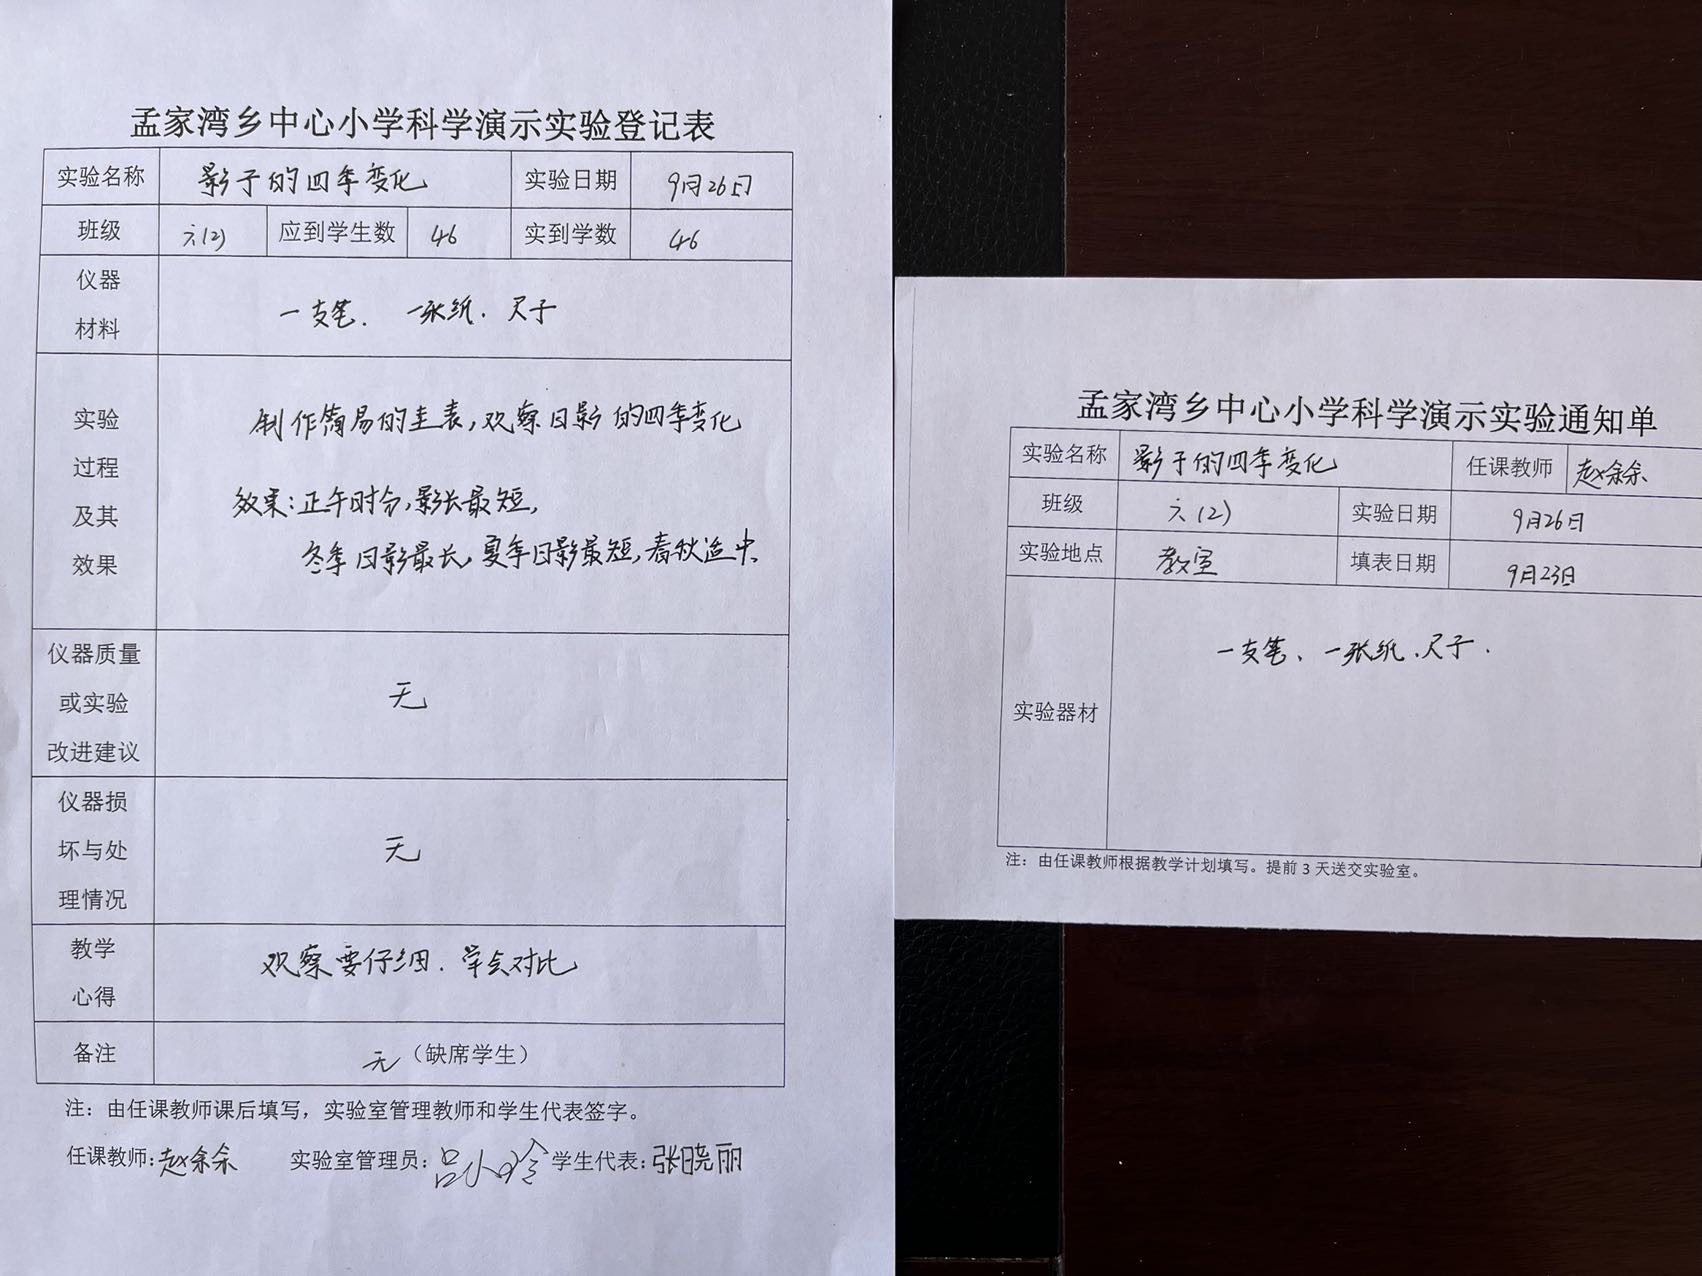 孟家湾乡中心小学科学演示实验登记表
实验名称 影子的四季变化 实验日期 9月26日
班级 六(2) 应到学生数 46 实到学数 46
仪器
材料
一支笔、一张纸、尺子
实验
过程
及其
效果
制作简易的圭表,观察日影的四季变化
效果:正午时分,影长最短,
冬季日影最长,夏季日影最短,春秋适中.
仪器质量
或实验
改进建议
无
仪器损
坏与处
理情况
无
教学
心得
观察要仔细.学会对比
备注 无(缺席学生)
注:由任课教师课后填写,实验室管理教师和学生代表签字。
任课教师:赵余余 实验室管理员:吕小玲 学生代表:张晓丽
孟家湾乡中心小学科学演示实验通知单
实验名称 影子的四季变化 任课教师 赵余余
班级 六(2) 实验日期 9月26日
实验地点 教室 填表日期 9月23日
实验器材 一支笔、一张纸、尺子.
注:由任课教师根据教学计划填写。提前3天送交实验室。